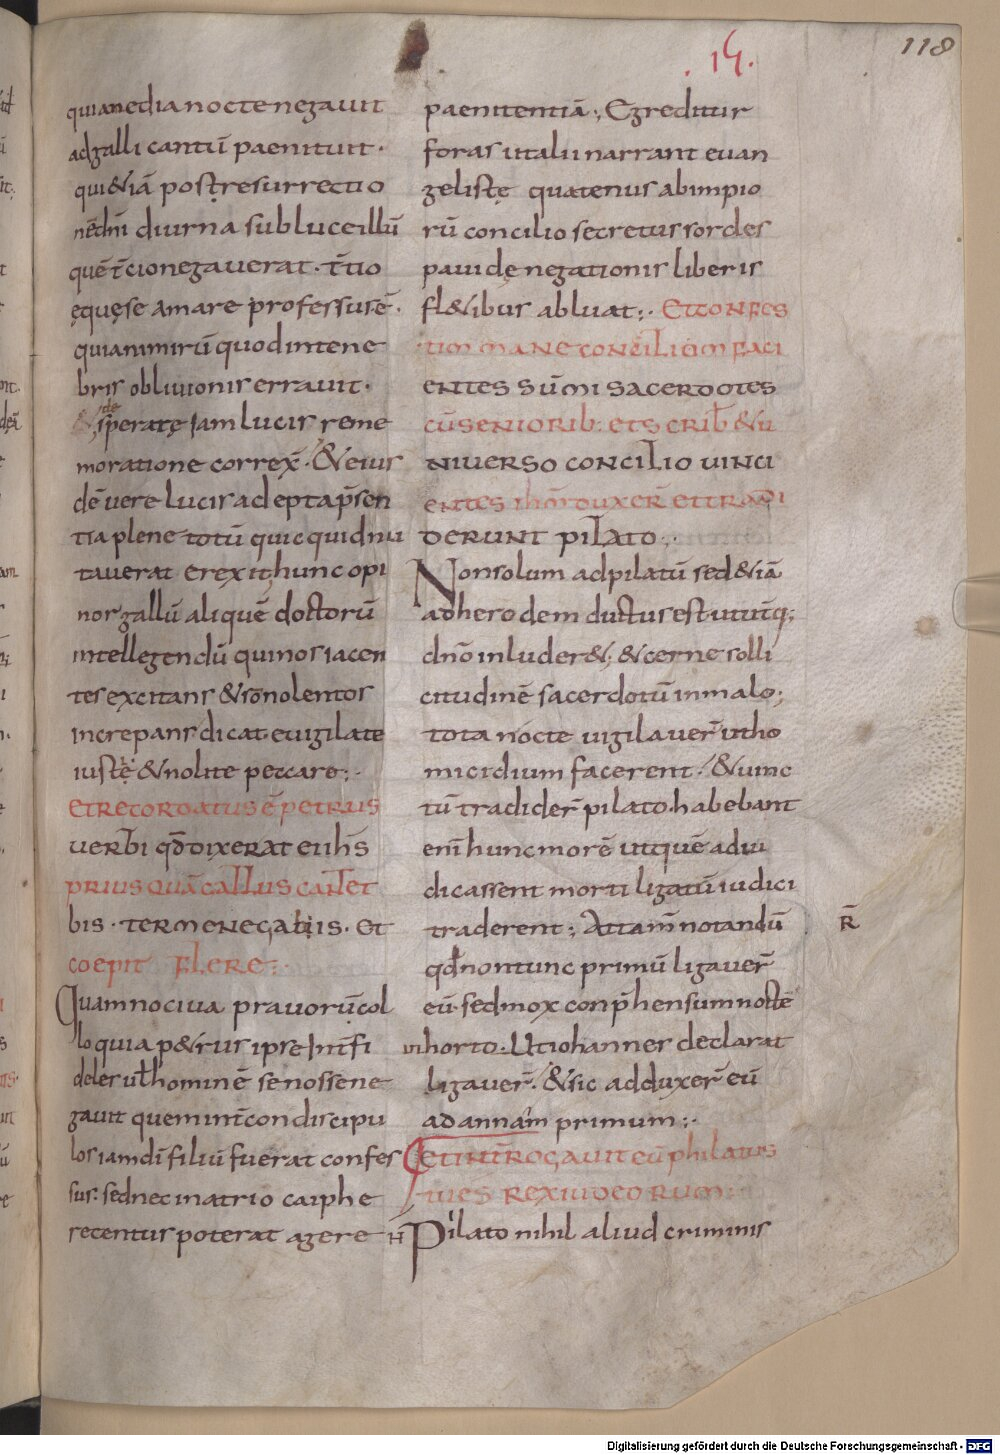 118
.15.
quia media nocte negavit
ad galli cantū paenituit ·
qui &iā post resurrectio
nē dn̄i diurna sub luce illū
quē t̄cio negaverat · t̄tio
ęquę se amare professus ē ·
quia nimirū quod in tene
bris oblivionis erravit ·
& speratę iam lucis reme
de
moratione correx̄ · & eius
dē vere lucis adepta p̄sen
tia plene totū quicquid nu
taverat erexit hunc opi
nor gallū aliquē doctorū
intellegendū qui nos iacen
tes excitans & sōnolentos
increpans dicat evigilate
iustę & nolite peccare ;·
ET RECORDATUS Ē PETRUS
VERBI QD̄ DIXERAT EI IHS̄
PRIUS QUĀ GALLUS CANTET
BIS · TER ME NEGABIS · ET
COEPIT FLERE :·
Quam nociva pravorū col
loquia p&rus ipse int̄ infi
deles ut̄ hominē se nosse ne
gavit quem int̄ condiscipu
los iam dī filiū fuerat confes
sus : sed nec in atrio caiphe
retentus poterat agere
paenitentiā ; Egreditur
foras ut alii narrant evan
gelistę quatenus ab impio
rū concilio secretus sordes
pavidę negationis liberis
fl&ibus abluat ;· ET CONFES
TIM MANE CONCILIUM FACI
ENTES SŪMI SACERDOTES
CŪ SENIORIB: ET SCRIB̄ & U
NIVERSO CONCILIO VINCI
ENTES IHM̄ DUXER̄ ET TRADI
DERUNT PILATO ;·
Non solum ad pilatū sed &iā
ad herodem ductus est ut utq̄;
dn̄o inluder&; & cerne solli
citudinē sacerdotū in malo ;
tota nocte vigilaver̄ ut ho
micidium facerent / & vinc
tū tradider̄ pilato. habebant
enī hunc morē ut quē adiu
dicassent morti ligatū iudici
traderent ; Attam̄ notandū
R̄
qd̄ non tunc primū ligaver̄
eū · sed mox conp̄hensum nocte
in horto · Ut iohannes declarat
ligaver̄ · & sic adduxer̄ eū
ad annam primum ;·
ET INT̄ROGAVIT EŪ PHILATUS
TU ES REX IUDEORUM
Pilato nihil aliud criminis
Digitalisierung gefördert durch die Deutsche Forschungsgemeinschaft - DFG